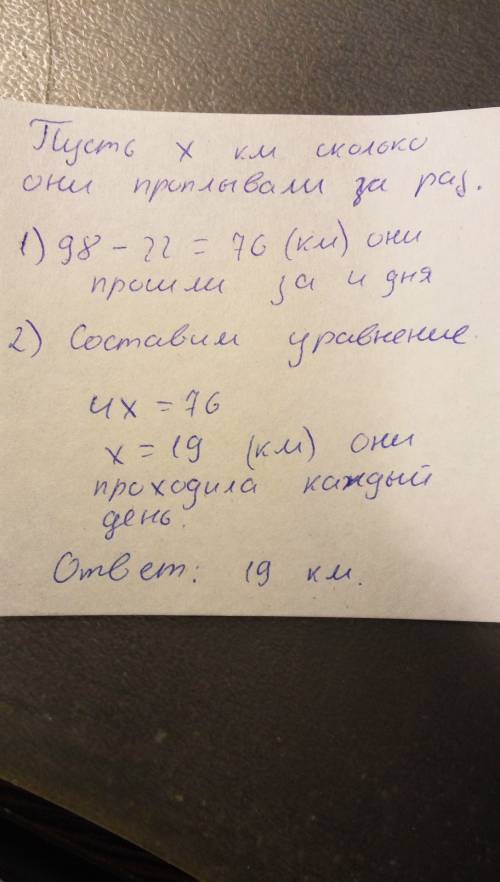 Пусть х км сколько
они проплывали за раз.
1) 98 - 22 = 76 (км) они
прошли за 4 дня
2) Составим уравнение.
4х = 76
х = 19 (км) они
проходила каждый
день.
Ответ: 19 км.